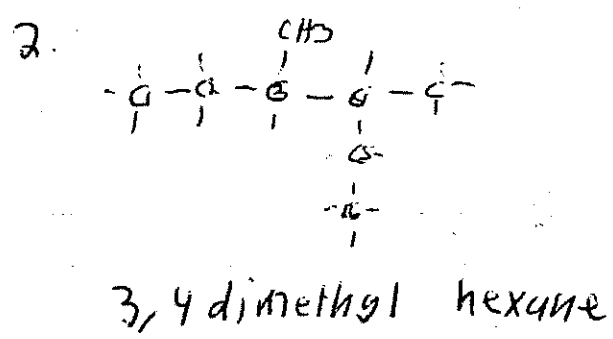 2.
CH3
C1 - C2 - C3 - C4 - C
C5 -
- C6 -
3,4 dimethyl hexane